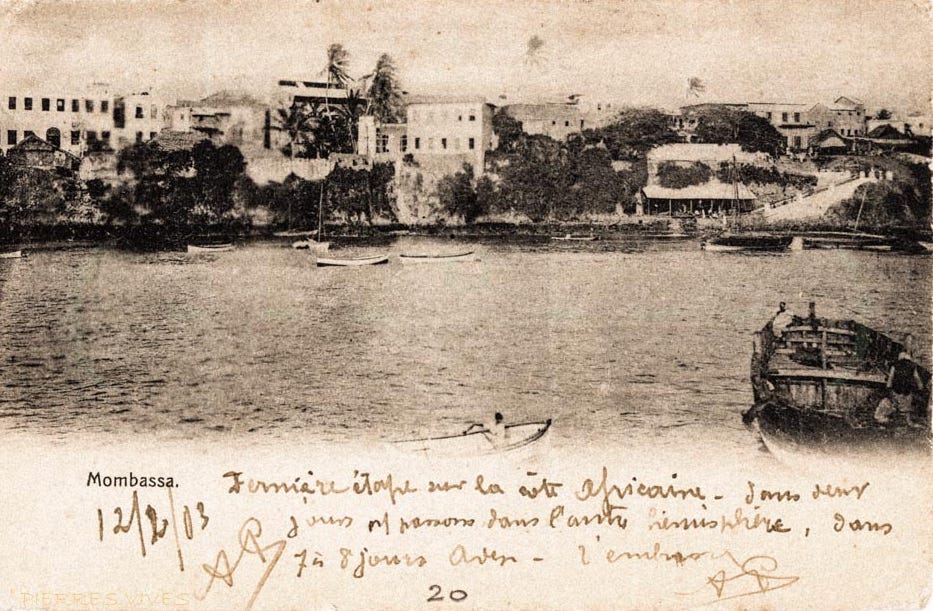 Mombassa.
Dernière étape sur la côte Africaine - dans deux
12/2/03
jours ns passons dans l'autre hémisphère, dans
7 à 8 jours Aden - l'embrasse
20
PIERRES VIVES